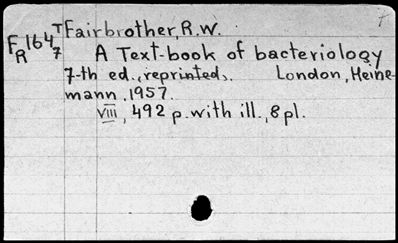 T Fairbrother, R.W.
F 164
R 7
A Text-book of bacteriology
7-th ed., reprinted. London, Heine-
mann, 1957.
VIII, 492 p. with ill., 8 pl.